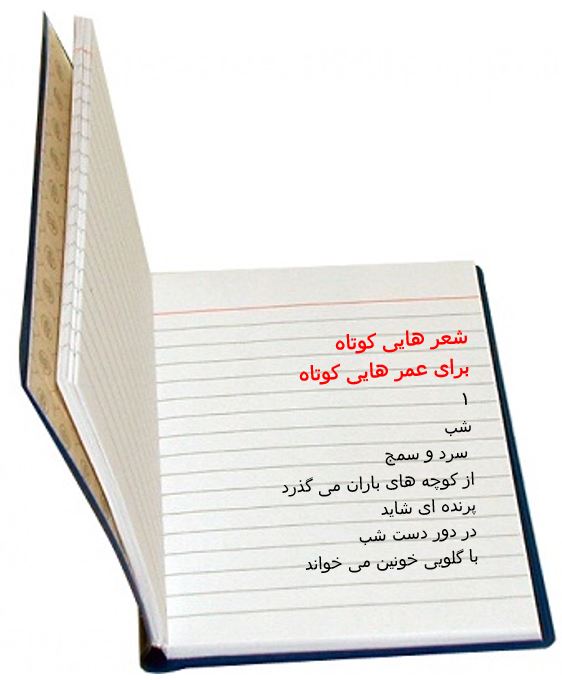 شعر هایی کوتاه
برای عمر هایی کوتاه
۱
شب
سرد و سمج
از کوچه های باران می گذرد
پرنده ای شاید
در دور دست شب
با گلویی خونین می خواند